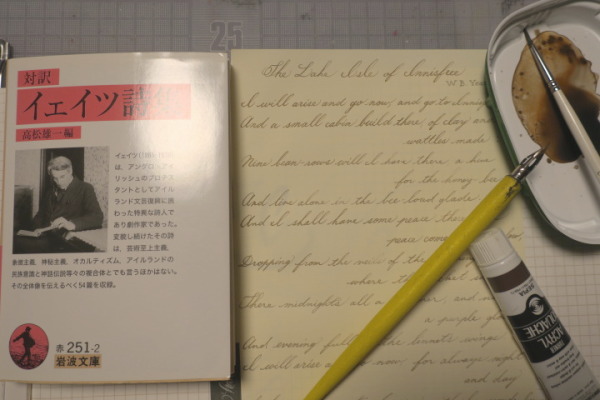 25
対訳
イェイツ詩集
高松雄一編
は、アングロ・アイ
リッシュのプロテス
タントとしてアイル
ランド文芸復興に携
わった特異な詩人で
あり劇作家であった。
変貌し続けたその詩
は、芸術至上主義、
象徴主義、神秘主義、オカルティズム、アイルランドの
民族意識と神話伝説等々の複合体とでも言うほかはない。
その全体像を伝えるべく54篇を収録。
赤 251-2
岩波文庫
The Lake Isle of Innisfree
W. B.
I will arise and go now, and go to
And a small cabin build there, of clay
wattles made
Nine bean-rows will I have there, a hive
for the honey bee
And live alone in the bee-loud glade
And I shall have some peace
peace
Dropping from the veils of the
where
There midnight's all a
a purple
And evening full of the linnet's wings
I will arise now, for always night
and day
SEPIA
ACRYL
GOUACHE